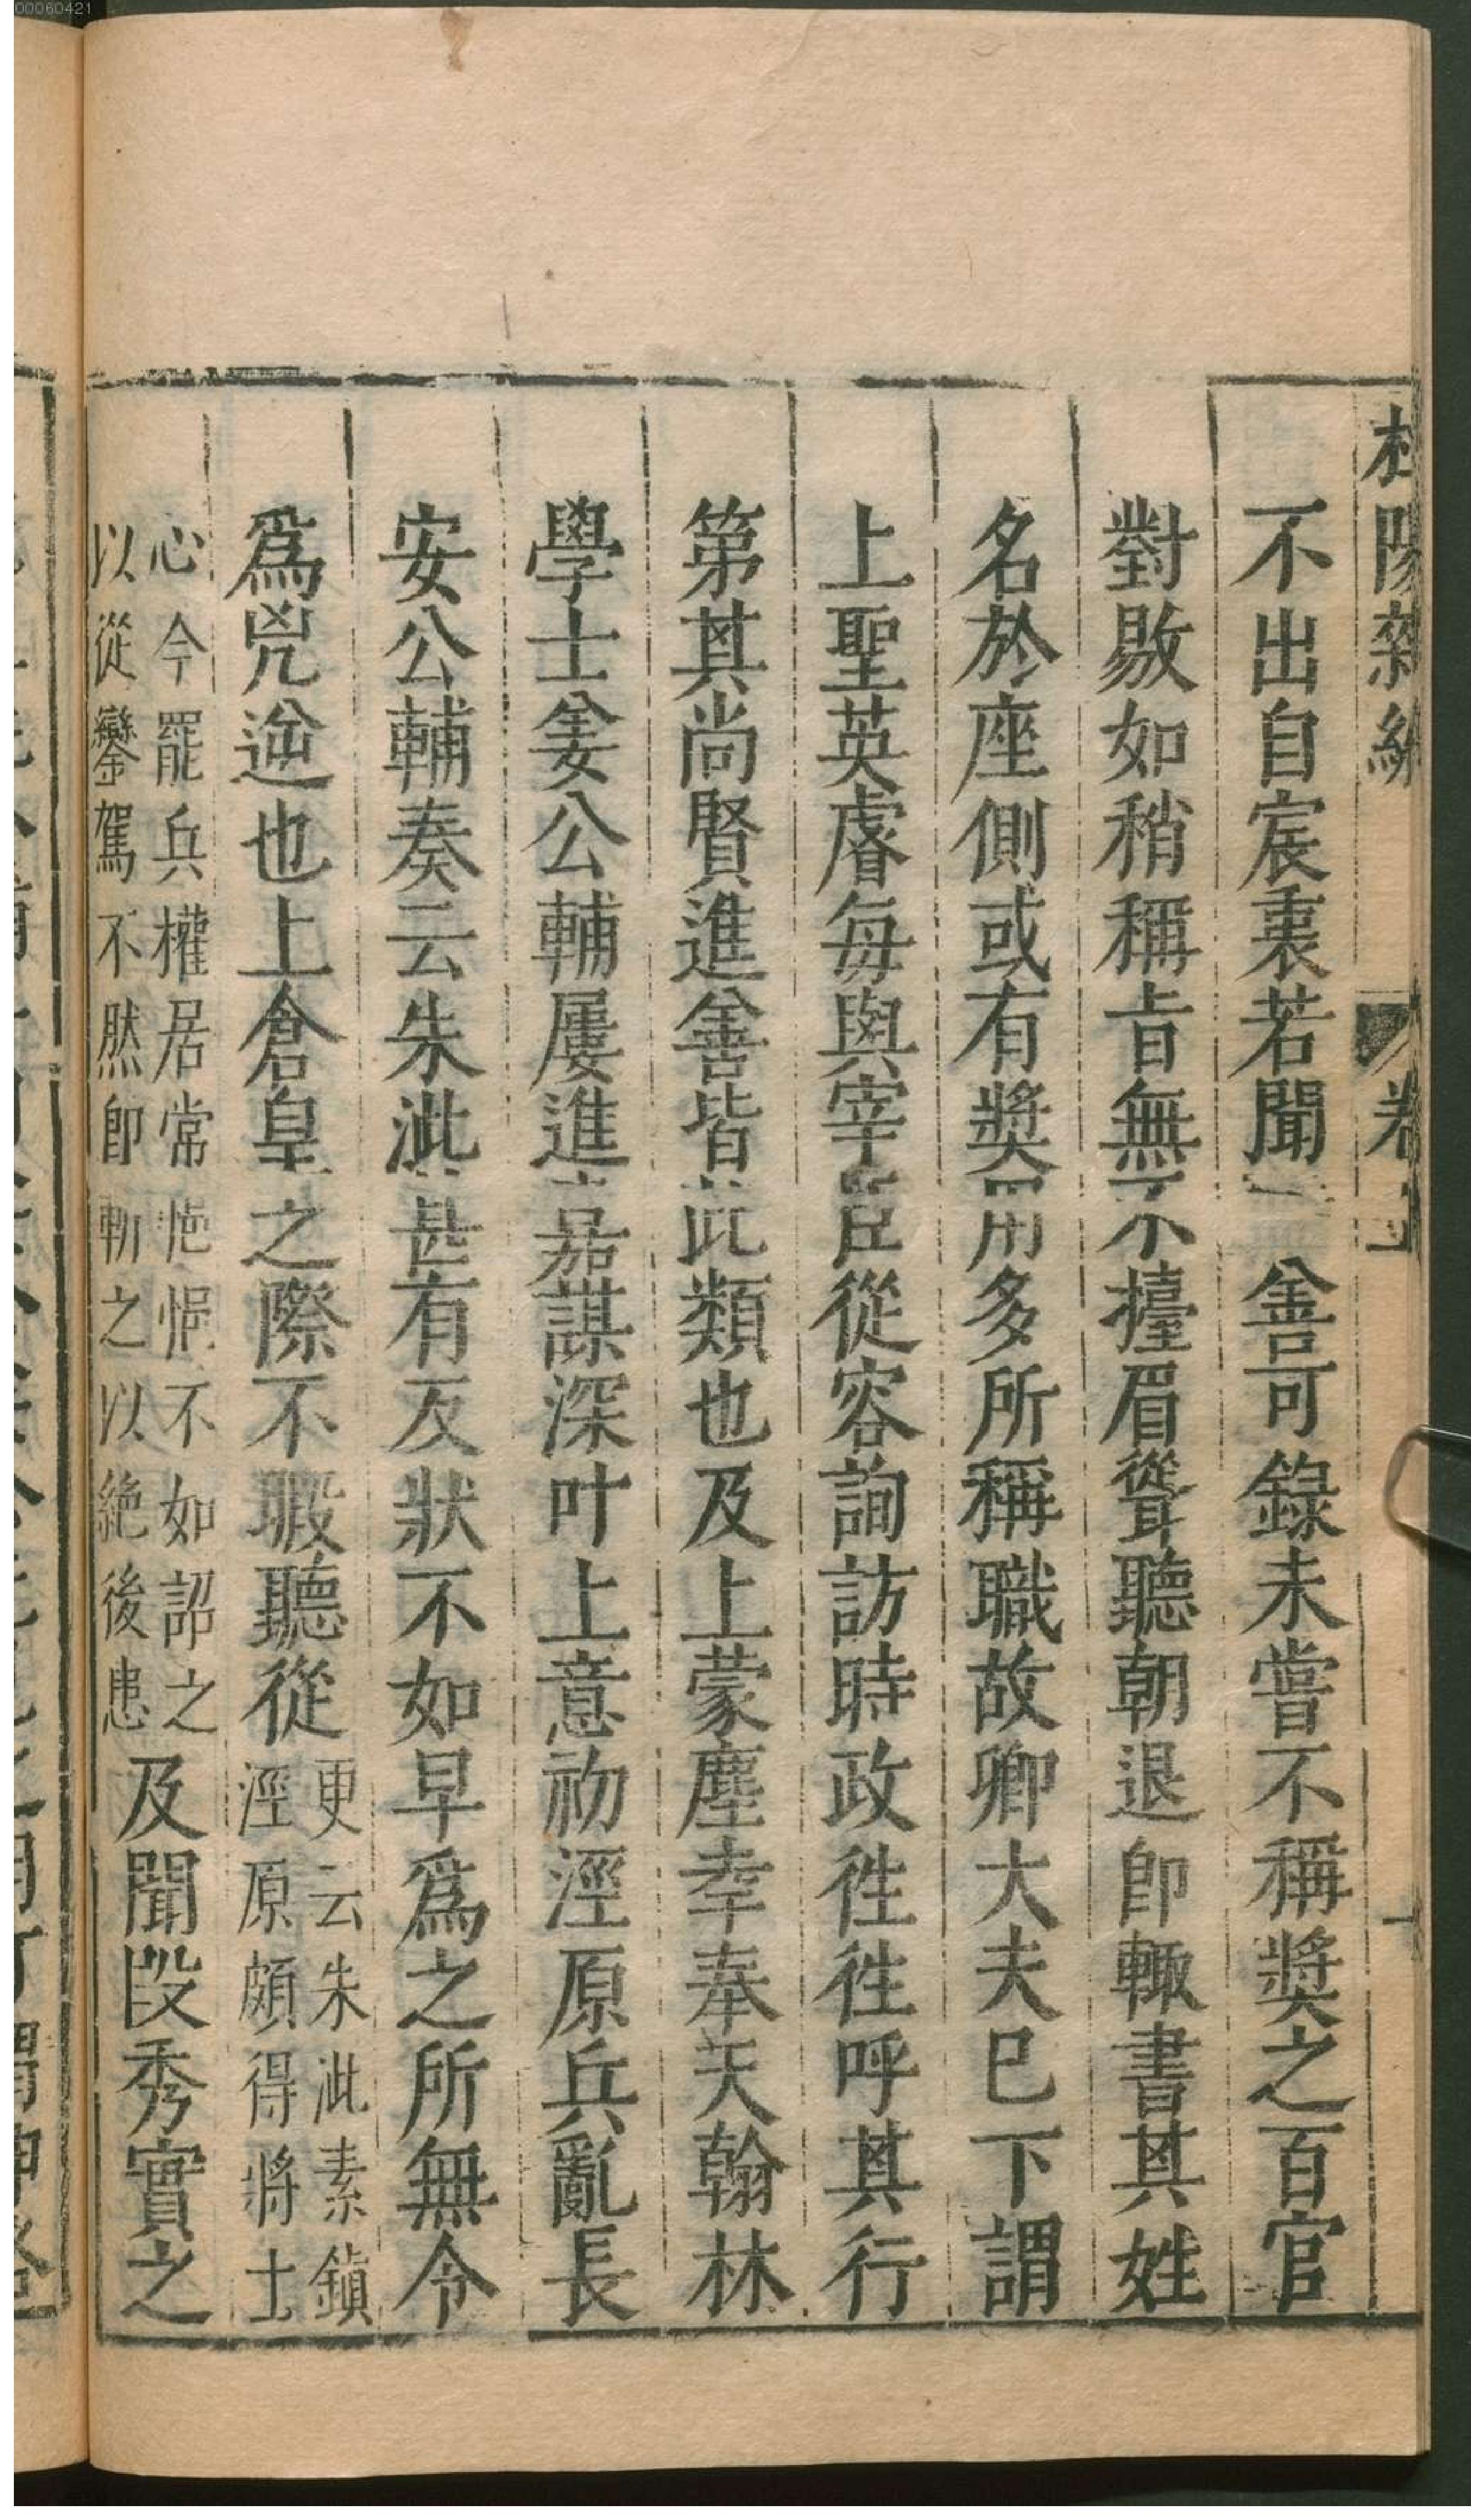 00060421
杜陽雜編 卷上
不出自宸衷若聞一善可錄未嘗不稱奬之百官
對敭如稍稱旨無不擡眉聳聽朝退卽輙書其姓
名於座側或有奬用多所稱職故卿大夫已下謂
上聖英睿每與宰臣從容詢訪時政徃徃呼其行
第其尚賢進善皆此類也及上蒙塵幸奉天翰林
學士姜公輔屢進嘉謀深叶上意初涇原兵亂長
安公輔奏云朱泚甚有反狀不如早爲之所無令
爲兇逆也上倉皇之際不暇聽從更云朱泚素鎮
涇原頗得將士
心今罷兵權居常悒悒不如詔之
以從鑾駕不然卽斬之以絶後患及聞段秀實之